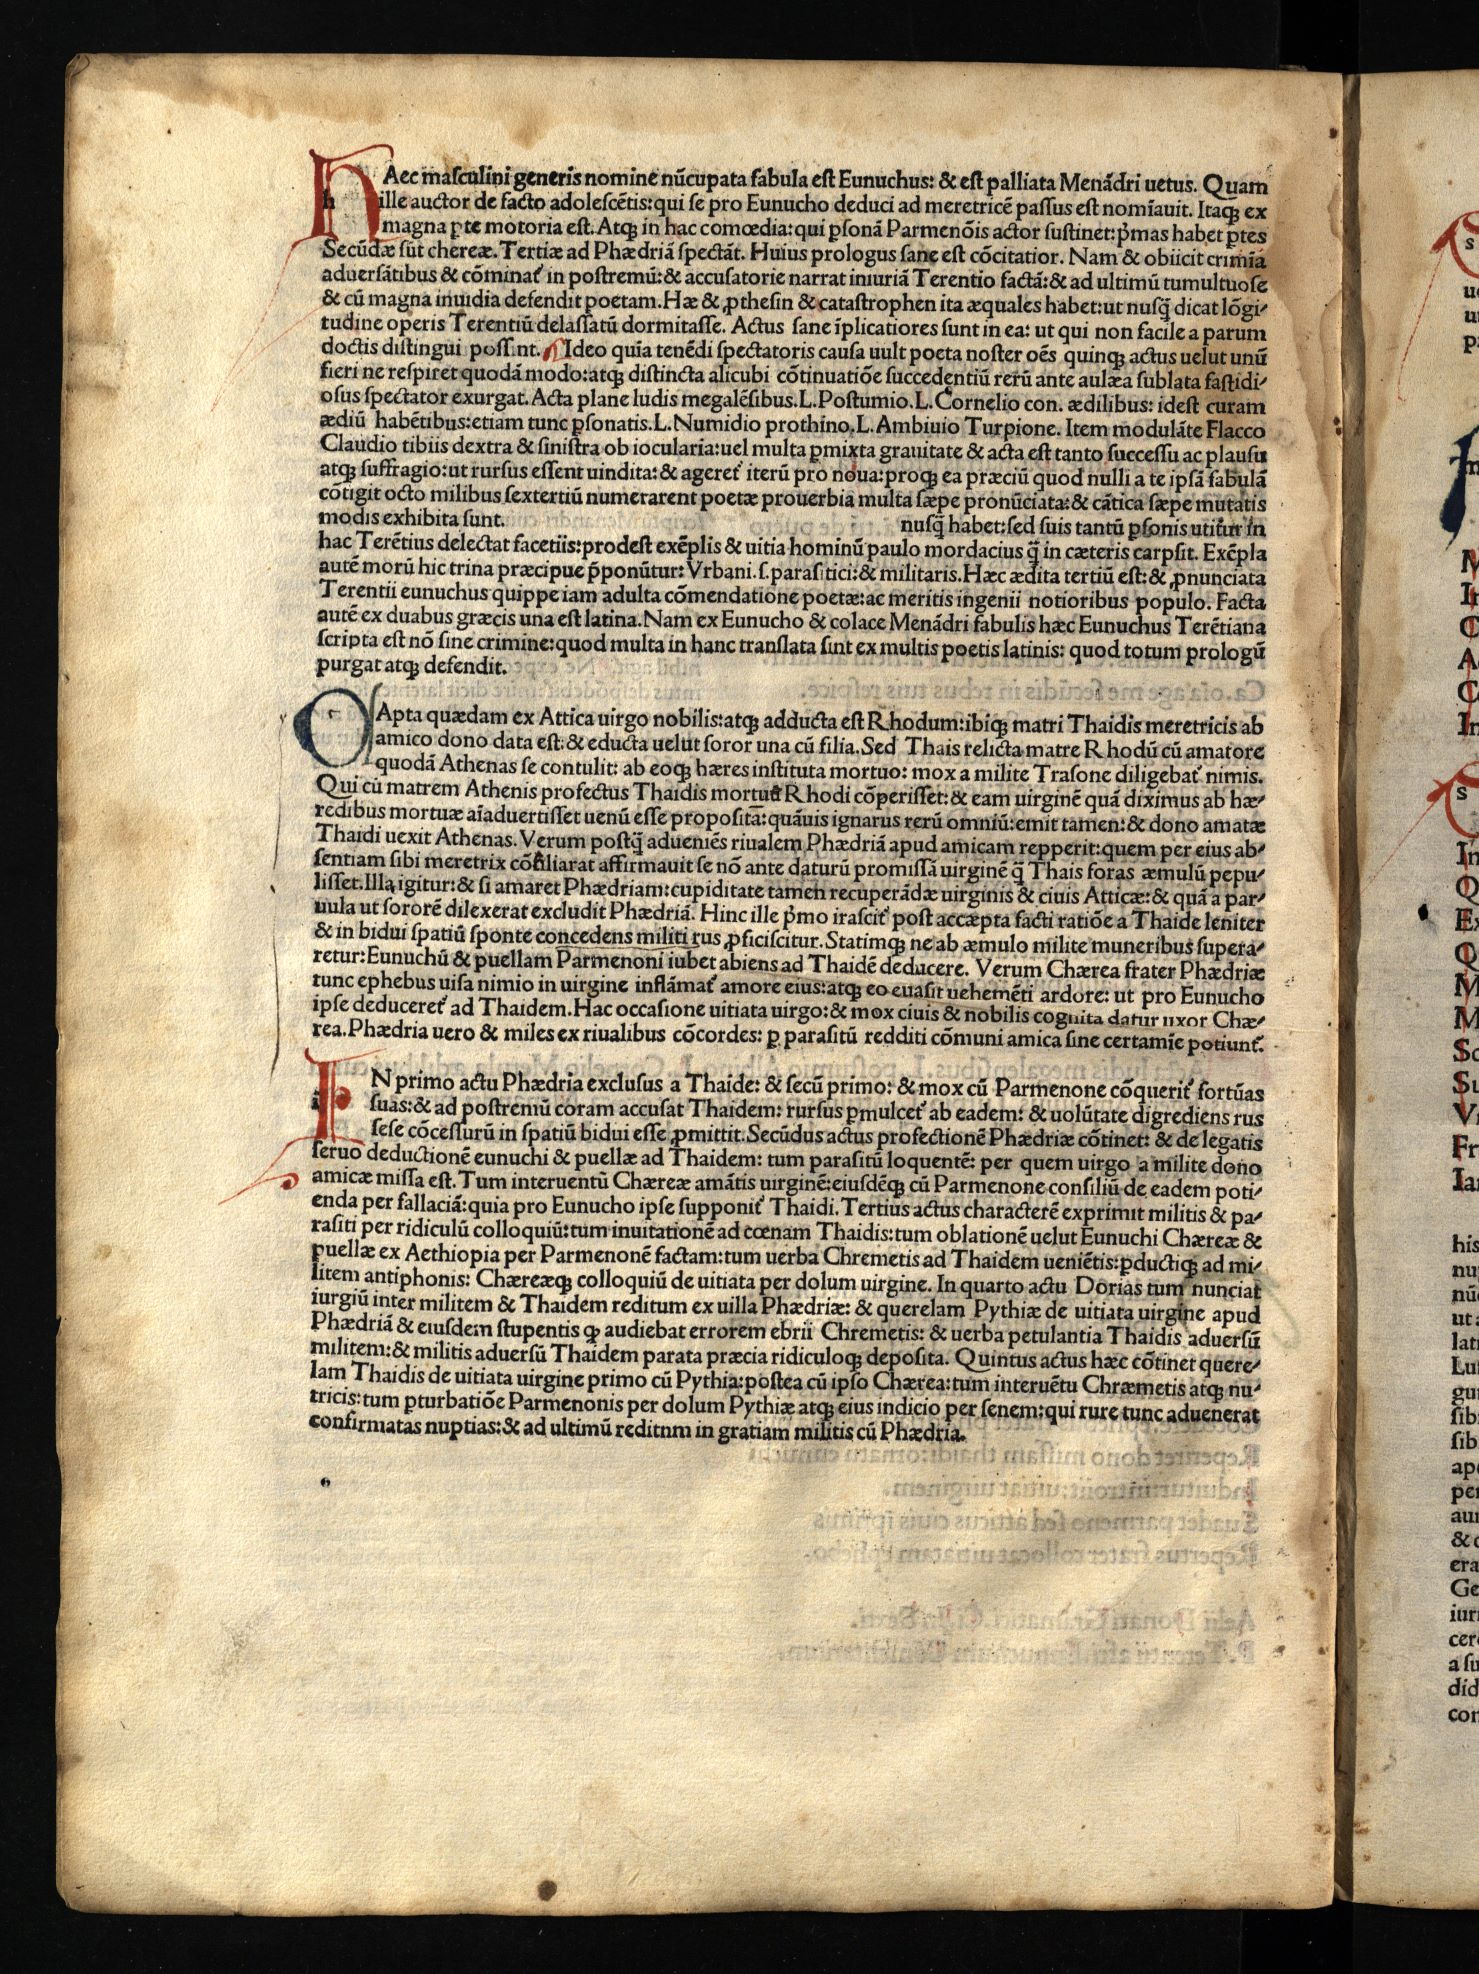 HAec maſculini generis nomine nūcupata fabula eſt Eunuchus: & eſt palliata Menādri uetus. Quam
ille auctor de facto adoleſcētis: qui ſe pro Eunucho deduci ad meretricē paſſus eſt nomīauit. Itaqꝫ ex
magna ꝑte motoria eſt. Atqꝫ in hac comœdia: qui ꝑſonā Parmenōis actor ſuſtinet: p̄mas habet ꝑtes
Secūdæ ſūt chereæ. Tertiæ ad Phædriā ſpectāt. Huius prologus ſane eſt cōcitatior. Nam & obiicit crimīa
aduerſātibus & cōminat᷑ in poſtremū: & accuſatorie narrat iniuriā Terentio factā: & ad ultimū tumultuoſe
& cū magna inuidia defendit poetam. Hæ & ꝓtheſin & cataſtrophen ita æquales habet: ut nuſq̄ dicat lōgi/
tudine operis Terentiū delaſſatū dormitaſſe. Actus ſane īplicatiores ſunt in ea: ut qui non facile a parum
doctis diſtingui poſſint. Ideo quia tenēdi ſpectatoris cauſa uult poeta noſter oēs quinqꝫ actus uelut unū
fieri ne reſpiret quodā modo: atqꝫ diſtincta alicubi cōtinuatiōe ſuccedentiū rerū ante aulæa ſublata faſtidi/
oſus ſpectator exurgat. Acta plane ludis megalēſibus. L. Poſtumio. L. Cornelio con. ædilibus: ideſt curam
ædiū habētibus: etiam tunc ꝑſonatis. L. Numidio prothino. L. Ambiuio Turpione. Item modulāte Flacco
Claudio tibiis dextra & ſiniſtra ob iocularia: uel multa ꝑmixta grauitate & acta eſt tanto ſucceſſu ac plauſu
atqꝫ ſuffragio: ut rurſus eſſent uindita: & ageret᷑ iterū pro noua: proqꝫ ea præciū quod nulli a te ipſā fabulā
cōtigit octo milibus ſextertiū numerarent poetæ prouerbia multa ſæpe pronūciata: & cātica ſæpe mutatis
modis exhibita ſunt. nuſq̄ habet: ſed ſuis tantū ꝑſonis utitur in
hac Terētius delectat facetiis: prodeſt exēplis & uitia hominū paulo mordacius q̄ in cæteris carpſit. Exēpla
autē morū hic trina præcipue p̄ponūtur: Vrbani. ſ. paraſitici: & militaris. Hæc ædita tertiū eſt: & ꝓnunciata
Terentii eunuchus quippe iam adulta cōmendatione poetæ: ac meritis ingenii notioribus populo. Facta
autē ex duabus græcis una eſt latina. Nam ex Eunucho & colace Menādri fabulis hæc Eunuchus Terētiana
ſcripta eſt nō ſine crimine: quod multa in hanc tranſlata ſint ex multis poetis latinis: quod totum prologū
purgat atqꝫ defendit.
CApta quædam ex Attica uirgo nobilis: atqꝫ adducta eſt Rhodum: ibiqꝫ matri Thaidis meretricis ab
amico dono data eſt: & educta uelut ſoror una cū filia. Sed Thais relicta matre Rhodū cū amatore
quodā Athenas ſe contulit: ab eoqꝫ hæres inſtituta mortuo: mox a milite Traſone diligebat᷑ nimis.
Qui cū matrem Athenis profectus Thaidis mortuā Rhodi cōperiſſet: & eam uirginē quā diximus ab hæ/
redibus mortuæ aīaduertiſſet uenū eſſe propoſitā: quāuis ignarus rerū omniū: emit tamen: & dono amatæ
Thaidi uexit Athenas. Verum poſtq̄ adueniēs riualem Phædriā apud amicam repperit: quem per eius ab/
ſentiam ſibi meretrix cōciliarat affirmauit ſe nō ante daturū promiſſā uirginē q̄ Thais foras æmulū pepu/
liſſet. Illa igitur: & ſi amaret Phædriam: cupiditate tamen recuperādæ uirginis & ciuis Atticæ: & quā a par/
uula ut ſororē dilexerat excludit Phædriā. Hinc ille p̄mo iraſcit᷑ poſt accæpta facti ratiōe a Thaide leniter
& in bidui ſpatiū ſponte concedens militi rus ꝓficiſcitur. Statimqꝫ ne ab æmulo milite muneribus ſupera/
retur: Eunuchū & puellam Parmenoni iubet abiens ad Thaidē deducere. Verum Chærea frater Phædriæ
tunc ephebus uiſa nimio in uirgine inflāmat᷑ amore eius: atqꝫ eo euaſit uehemēti ardore: ut pro Eunucho
ipſe deduceret᷑ ad Thaidem. Hac occaſione uitiata uirgo: & mox ciuis & nobilis cognita datur uxor Chæ/
rea. Phædria uero & miles ex riualibus cōcordes: ꝑ paraſitū redditi cōmuni amica ſine certamīe potiunt᷑.
IN primo actu Phædria excluſus a Thaide: & ſecū primo: & mox cū Parmenone cōquerit᷑ fortūas
ſuas: & ad poſtremū coram accuſat Thaidem: rurſus ꝑmulcet᷑ ab eadem: & uolūtate digrediens rus
ſeſe cōceſſurū in ſpatiū bidui eſſe ꝓmittit. Secūdus actus profectionē Phædriæ cōtinet: & de legatis
ſeruo deductionē eunuchi & puellæ ad Thaidem: tum paraſitū loquentē: per quem uirgo a milite dono
amicæ miſſa eſt. Tum interuentū Chæreæ amātis uirginē: eiuſdēqꝫ cū Parmenone conſiliū de eadem poti/
enda per fallaciā: quia pro Eunucho ipſe ſupponit᷑ Thaidi. Tertius actus characterē exprimit militis & pa/
raſiti per ridiculū colloquiū: tum inuitationē ad cœnam Thaidis: tum oblationē uelut Eunuchi Chæreæ &
puellæ ex Aethiopia per Parmenonē factam: tum uerba Chremetis ad Thaidem ueniētis: ꝑductiqꝫ ad mi/
litem antiphonis: Chæreæqꝫ colloquiū de uitiata per dolum uirgine. In quarto actu Dorias tum nunciat
iurgiū inter militem & Thaidem reditum ex uilla Phædriæ: & querelam Pythiæ de uitiata uirgine apud
Phædriā & eiuſdem ſtupentis qꝫ audiebat errorem ebrii Chremetis: & uerba petulantia Thaidis aduerſū
militem: & militis aduerſū Thaidem parata præcia ridiculoqꝫ depoſita. Quintus actus hæc cōtinet quere/
lam Thaidis de uitiata uirgine primo cū Pythia: poſtea cū ipſo Chærea: tum interuētu Chræmetis atqꝫ nu/
tricis: tum ꝑturbatiōe Parmenonis per dolum Pythiæ atqꝫ eius indicio per ſenem: qui rure tunc aduenerat
confirmatas nuptias: & ad ultimū reditnm in gratiam militis cū Phædria.